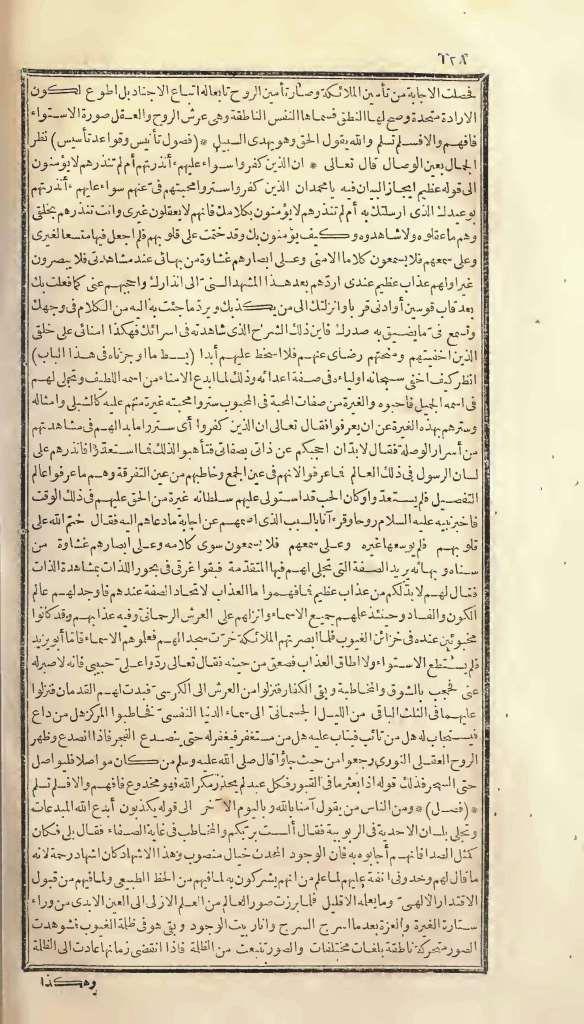 فحصلت الاجابة من تأمين الملائكة وصار تأمين الروح تابعاله اتباع الاجناد بل اطوع لكون
الارادة متحدة وصح لها النطق فسماها النفس الناطقة وهى عرش الروح والعقل صورة الاستواء
فافهم والافسلم تسلم والله يقول الحق وهو يهدى السبيل * (فصول تأنيس وقواعد تأسيس) نظر
الجمال بعين الوصال قال تعالى * ان الذين كفروا سواء عليهم ءأنذرتهم أم لم تنذرهم لا يؤمنون
الى قوله عظيم ايجاز البيان فيه يا محمد ان الذين كفروا ستروا محبتهم فى عنهم سواء عليهم ءأنذرتهم
بوعيدك الذى ارسلتك به أم لم تنذرهم لا يؤمنون بكلامك فانهم لا يعقلون غيرى وانت تنذرهم بخلقى
وهم ما عقلوه ولا شاهدوه وكيف يؤمنون بك وقد ختمت على قلوبهم فلم اجعل فيها متسعا لغيرى
وعلى سمعهم فلا يسمعون كلاما الا منى وعلى ابصارهم غشاوة من بهائى عند مشاهدتى فلا يبصرون
غيرى ولهم عذاب عظيم عندى اردهم بعد هذا المشهد السنى الى انذارك واحجبهم عنى كما فعلت بك
بعد قاب قوسين أو ادنى قربا وانزلتك الى من يكذبك ويرد ما جئت به اليه من الكلام فى وجهك
وتسمع فى ما يضيق به صدرك فاين ذلك الشرح الذى شاهدته فى اسرائك فهكذا امنائى على خلقى
الذين اخفيتهم ومنحتهم رضاى عنهم فلا اسخط عليهم أبدا (بسط ما اوجزناه فى هذا الباب)
انظر كيف اخفى سبحانه اولياءه فى صفة اعدائه وذلك لما ابدع الامناء من اسمه اللطيف وتجلى لهم
فى اسمه الجميل فاحبوه والغيرة من صفات المحبة فى المحبوب ستروا محبته غيرة منهم عليه كالشبلى وامثاله
وسترهم بهذه الغيرة عن ان يعرفوا فقال تعالى ان الذين كفروا أى ستروا ما بدا لهم فى مشاهدتهم
من أسرار الوصلة فقال لا بد ان احجبكم عن ذاتى بصفاتى فتأهبوا لذلك فما استعدوا فانذرهم على
لسان الرسول فى ذلك العالم فما عرفوا لانهم فى عين الجمع وخاطبهم من عين التفرقة وهم ما عرفوا عالم
التفصيل فلم يستعدوا وكان الحب قد استولى عليهم سلطانه غيرة من الحق عليهم فى ذلك الوقت
فاخبر نبيه عليه السلام روحا وقرءآنا بالسبب الذى اصمهم عن اجابة ما دعاهم اليه فقال ختم الله على
قلوبهم فلم يوسعها غيره وعلى سمعهم فلا يسمعون سوى كلامه وعلى ابصارهم غشاوة من
سناه وبهائه يريد الصفة التى تجلى لهم فيها المتقدمة فبقوا غرقى فى بحور اللذات بمشاهدة الذات
فقال لهم لا بد لكم من عذاب عظيم فما فهموا ما العذاب لاتحاد الصفة عندهم فاوجد لهم عالم
الكون والفساد وحينئذ علمهم جميع الاسماء وانزلهم على العرش الرحمانى وفيه عذابهم وقد كانوا
مخبوئين عنده فى خزائن الغيوب فلما ابصرتهم الملائكة خرت سجدا لهم فعلموهم الاسماء فاما أبو يزيد
فلم يستطع الاستواء ولا اطاق العذاب فصعق من حينه فقال تعالى ردوا على حبيبى فانه لا صبر له
عنى فحجب بالشوق والمخاطبة وبقى الكفار فنزلوا من العرش الى الكرسى فبدت لهم القدمان فنزلوا
عليهما فى الثلث الباقى من الليل الجسمانى الى سماء الدنيا النفسى فخاطبوا المركز هل من داع
فيستجاب له هل من تائب فيتاب عليه هل من مستغفر فيغفر له حتى ينصدع الفجر فاذا انصدع وظهر
الروح العقلى النورى رجعوا من حيث جاؤا قال صلى الله عليه وسلم من كان مواصلا فليواصل
حتى السحر فذلك قوله اذا بعثر ما فى القبور فكل عبد لم يحذر مكر الله فهو مخدوع فافهم والافسلم تسلم
* (فصل) * ومن الناس من يقول آمنا بالله وباليوم الآخر الى قوله يكذبون أبدع الله المبدعات
وتجلى بلسان الاحدية فى الربوبية فقال ألست بربكم والمخاطب فى غاية الصفاء فقال بلى فكان
كمثل الصدا فانهم أجابوه به فان الوجود المحدث خيال منصوب وهذا الاشهاد كان اشهاد رحمة لانه
ما قال لهم وحدونى ابقاء عليهم لما علم من انهم يشركون به لما فيهم من الحظ الطبيعى ولما فيهم من قبول
الاقتدار الالهى وما يعلمه الا قليل فلما برزت صور العالم من العلم الازلى الى العين الابدى من وراء
ستارة الغيرة والعزة بعدما اسرج السرج وانار بيت الوجود وبقى هو فى ظلمة الغيوب فشوهدت
الصور متحركة ناطقة بلغات مختلفات والصور تنبعث من الظلمة فاذا انقضى زمانها عادت الى الظلمة
وهكذا